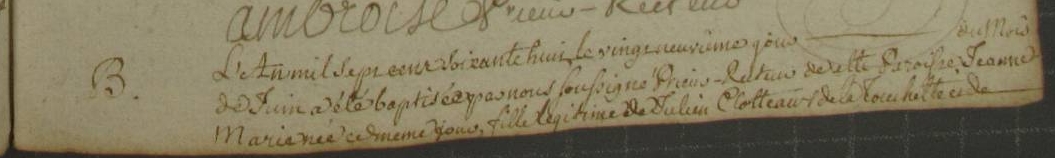 ambroise Prieur-Recteur
B. L'An mil Sept cent Soixante huit le vingt neuvième jour du Mois
de Juin a été baptisée par nous Soussigné Prieur-Recteur de cette Paroisse Jeanne
Marie née ce même jour, fille légitime de Julien Clotteau & de la Touche